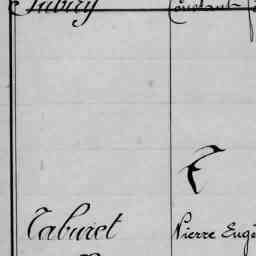 Constant
T
Taburet Pierre Eugè